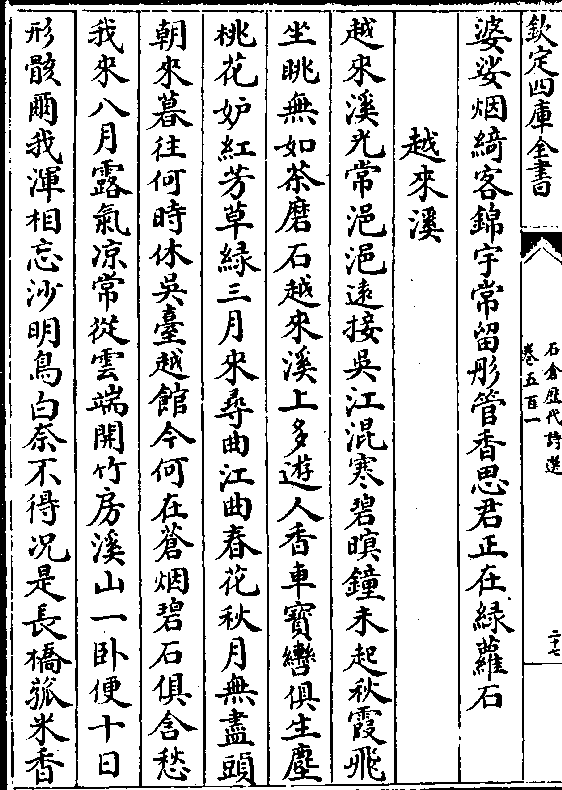 欽定四庫全書
石倉歷代詩選
卷五百一
二十七
婆娑烟綺客錦宇常留彤管香思君正在綠蘿石
越來溪
越來溪光常浥浥遠接吳江混寒碧暝鐘未起秋霞飛
坐眺無如茶磨石越來溪上多遊人香車寶轡俱生塵
桃花妒紅芳草緑三月來尋曲江曲春花秋月無盡頭
朝來暮往何時休吳臺越館今何在蒼烟碧石俱含愁
我來八月露氣凉常從雲端開竹房溪山一卧便十日
形骸爾我渾相忘沙明鳥白奈不得况是長橋菰米香